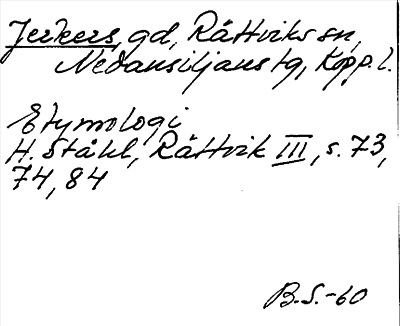 Jerkers, gd, Rättviks sn,
Nedansiljans tg, Kopp. l.
Etymologi
H. Ståhl, Rättvik III, s. 73,
74, 84
B.S.-60